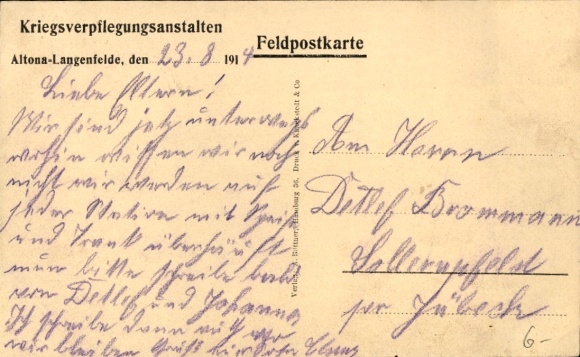 Kriegsverpflegungsanstalten
Altona-Langenfelde, den 23. 8 1914
Feldpostkarte
Liebe Eltern!
Wir sind jetz unterwegs
wohin wissen wir noch
nicht wir werden auf
jeder Station mit Speise
und Trank überhäuft
nun bitte schreibe bald
von Detlef und Johanna
Ich schreibe dann auch wo
wir bleiben Gruß Euer Sohn
An Herrn
Detlef Brommann
Sollerupfeld
per Jübeck
Hamburg 36. Druck v.
6-